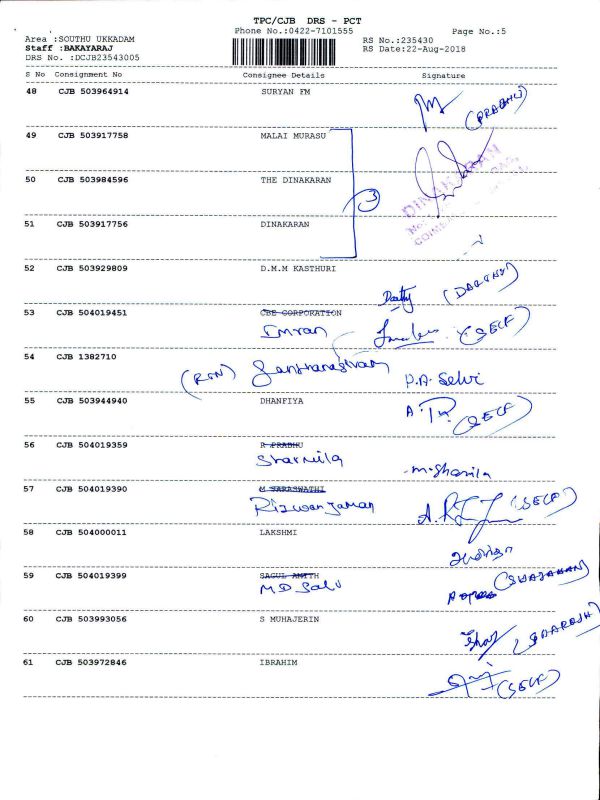 TPC/CJB DRS - PCT
Phone No.:0422-7101555 Page No.:5
Area :SOUTHU UKKADAM RS No.:235430
Staff :BAKAYARAJ RS Date:22-Aug-2018
DRS No. :DCJB23543005
S No Consignment No Consignee Details Signature
48 CJB 503964914 SURYAN FM
(PRABHU)
49 CJB 503917758 MALAI MURASU
50 CJB 503984596 THE DINAKARAN
3
DINAKARAN
51 CJB 503917756 DINAKARAN
52 CJB 503929809 D.M.M KASTHURI
53 CJB 504019451 CBE CORPORATION
Imran (SELF)
54 CJB 1382710
(RSN) P.A. Selvi
55 CJB 503944940 DHANFIYA
(SELF)
56 CJB 504019359 R PRABHU
Sharmila m. Sharmila
57 CJB 504019390 M SARASWATHI
Rizwan Jaman (SELF)
58 CJB 504000011 LAKSHMI
59 CJB 504019399 SAGUL AMITH
MD (SHAJAHAN)
60 CJB 503993056 S MUHAJERIN
61 CJB 503972846 IBRAHIM
(SELF)